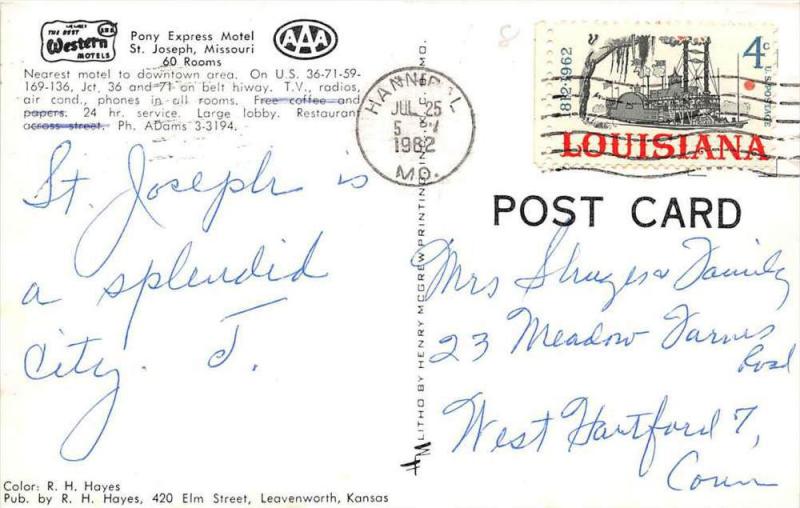 THE BEST
Western
MOTELS
AAA
Pony Express Motel
St. Joseph, Missouri
60 Rooms
Nearest motel to downtown area. On U.S. 36-71-59-
169-136, Jct. 36 and 71 on belt hiway. T.V., radios,
air cond., phones in all rooms. Free coffee and
papers. 24 hr. service. Large lobby. Restaurant
across street. Ph. ADams 3-3194.
St. Joseph is
a splendid
city. J.
Color: R. H. Hayes
Pub. by R. H. Hayes, 420 Elm Street, Leavenworth, Kansas
LITHO BY HENRY MCGREW PRINTING
MO.
HANNIBAL
JUL 25
1962
MO.
1812-1962
4c
U.S. POSTAGE
LOUISIANA
POST CARD
Mrs & Family
23 Meadow Farms
Road
West Hartford 7,
Conn